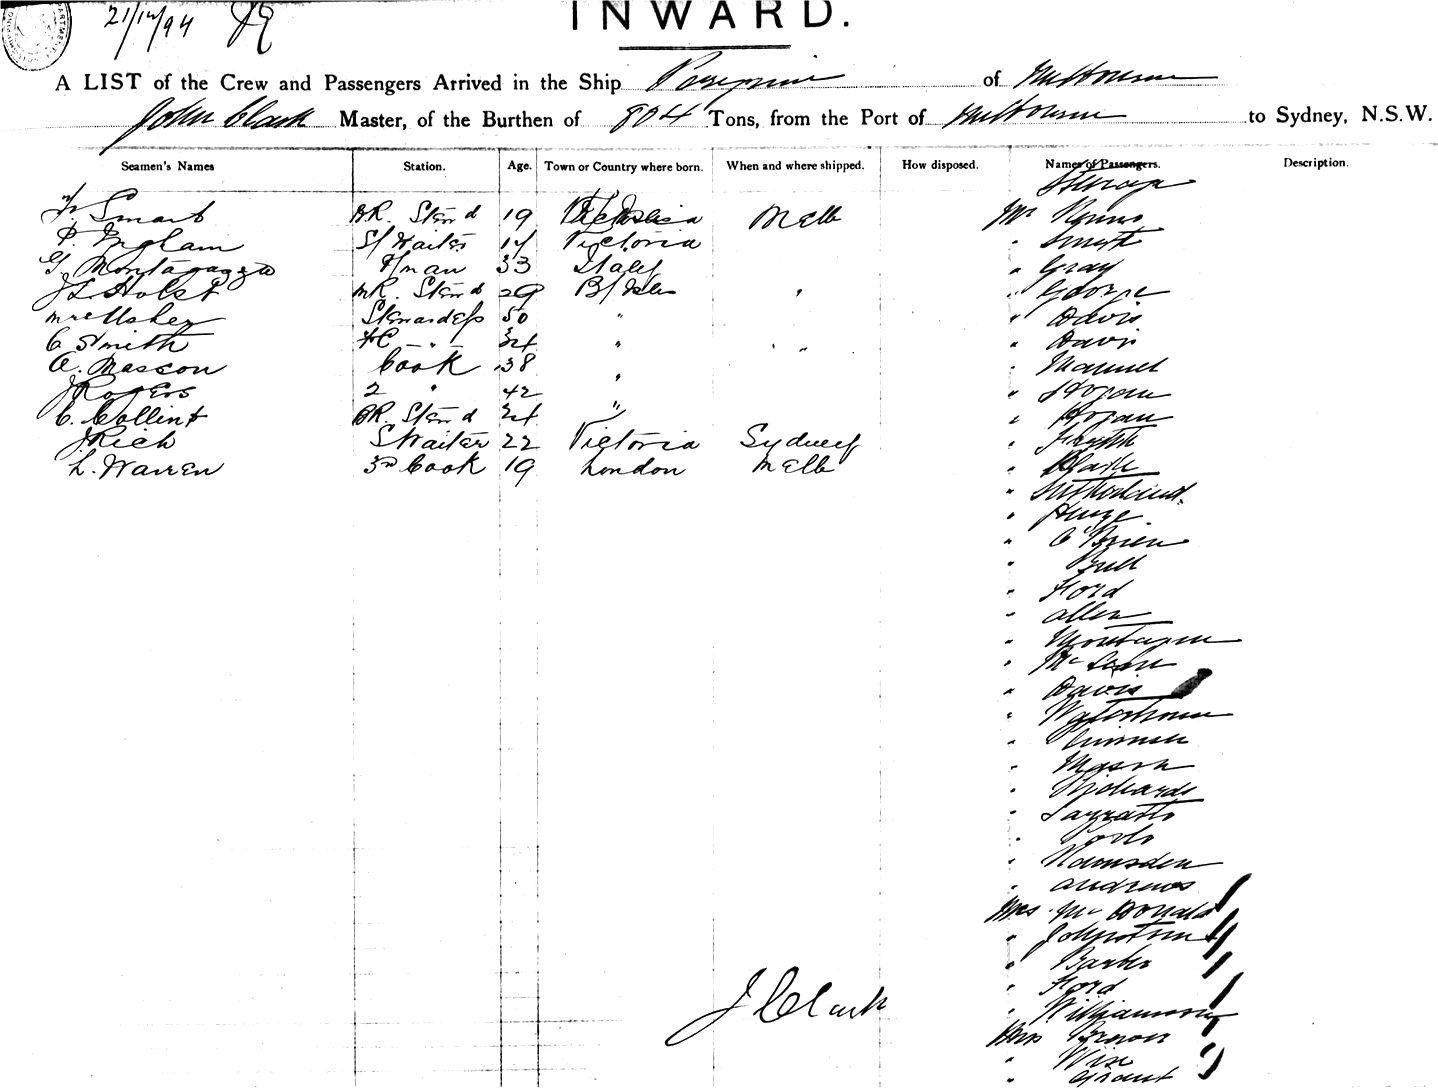 21/12/94
INWARD.
A LIST of the Crew and Passengers Arrived in the Ship Peregrine of Melbourne
John Clark Master, of the Burthen of 804 Tons, from the Port of Melbourne to Sydney, N.S.W.
Seamen's Names Station. Age. Town or Country where born. When and where shipped. How disposed. Names of Passengers. Description.
Steerage
Smart BR. Stewd 19 Melb Mr
P. Ingham S/Waiter 17 Victoria " Smyth
G. Montagazza F/man 33 Italy " Gray
J L Holst MR. Stewd 29 B/Isles " " George
Mrs Usher Stewardess 50 " " Davis
C Smith FC " 34 " " " " Davis
A. Masson Cook 38 " " Manuel
J Rogers 2 " 42 " Hogan
C. Collins BR. Stewd 24 " " Hogan
J Rich S Waiter 22 Victoria Sydney " Forsyth
L. Warren 3rd Cook 19 London Melb " Clark
" Sutherland
"
" O'Brien
" Bull
" Ford
" Allen
" Montague
" McLean
" Davis
" Waterhouse
"
" Mason
" Richards
"
"
" Ramsden
" Andrews
Mrs McDonald
" Johnstone
" Barber
" Ford
" Williamson
J Clark
Miss Brown
" Wise
" Grant